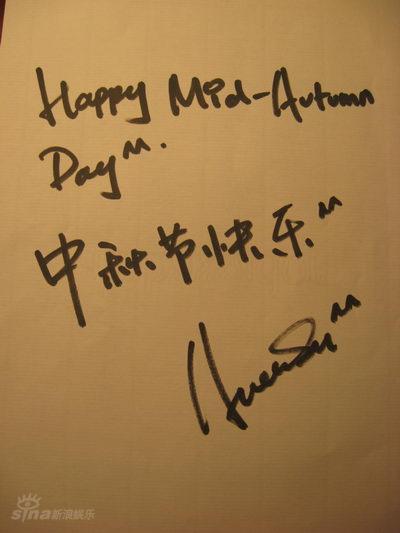 Happy Mid-Autumn
Day^^.
中秋节快乐^^
^^
sina新浪娱乐